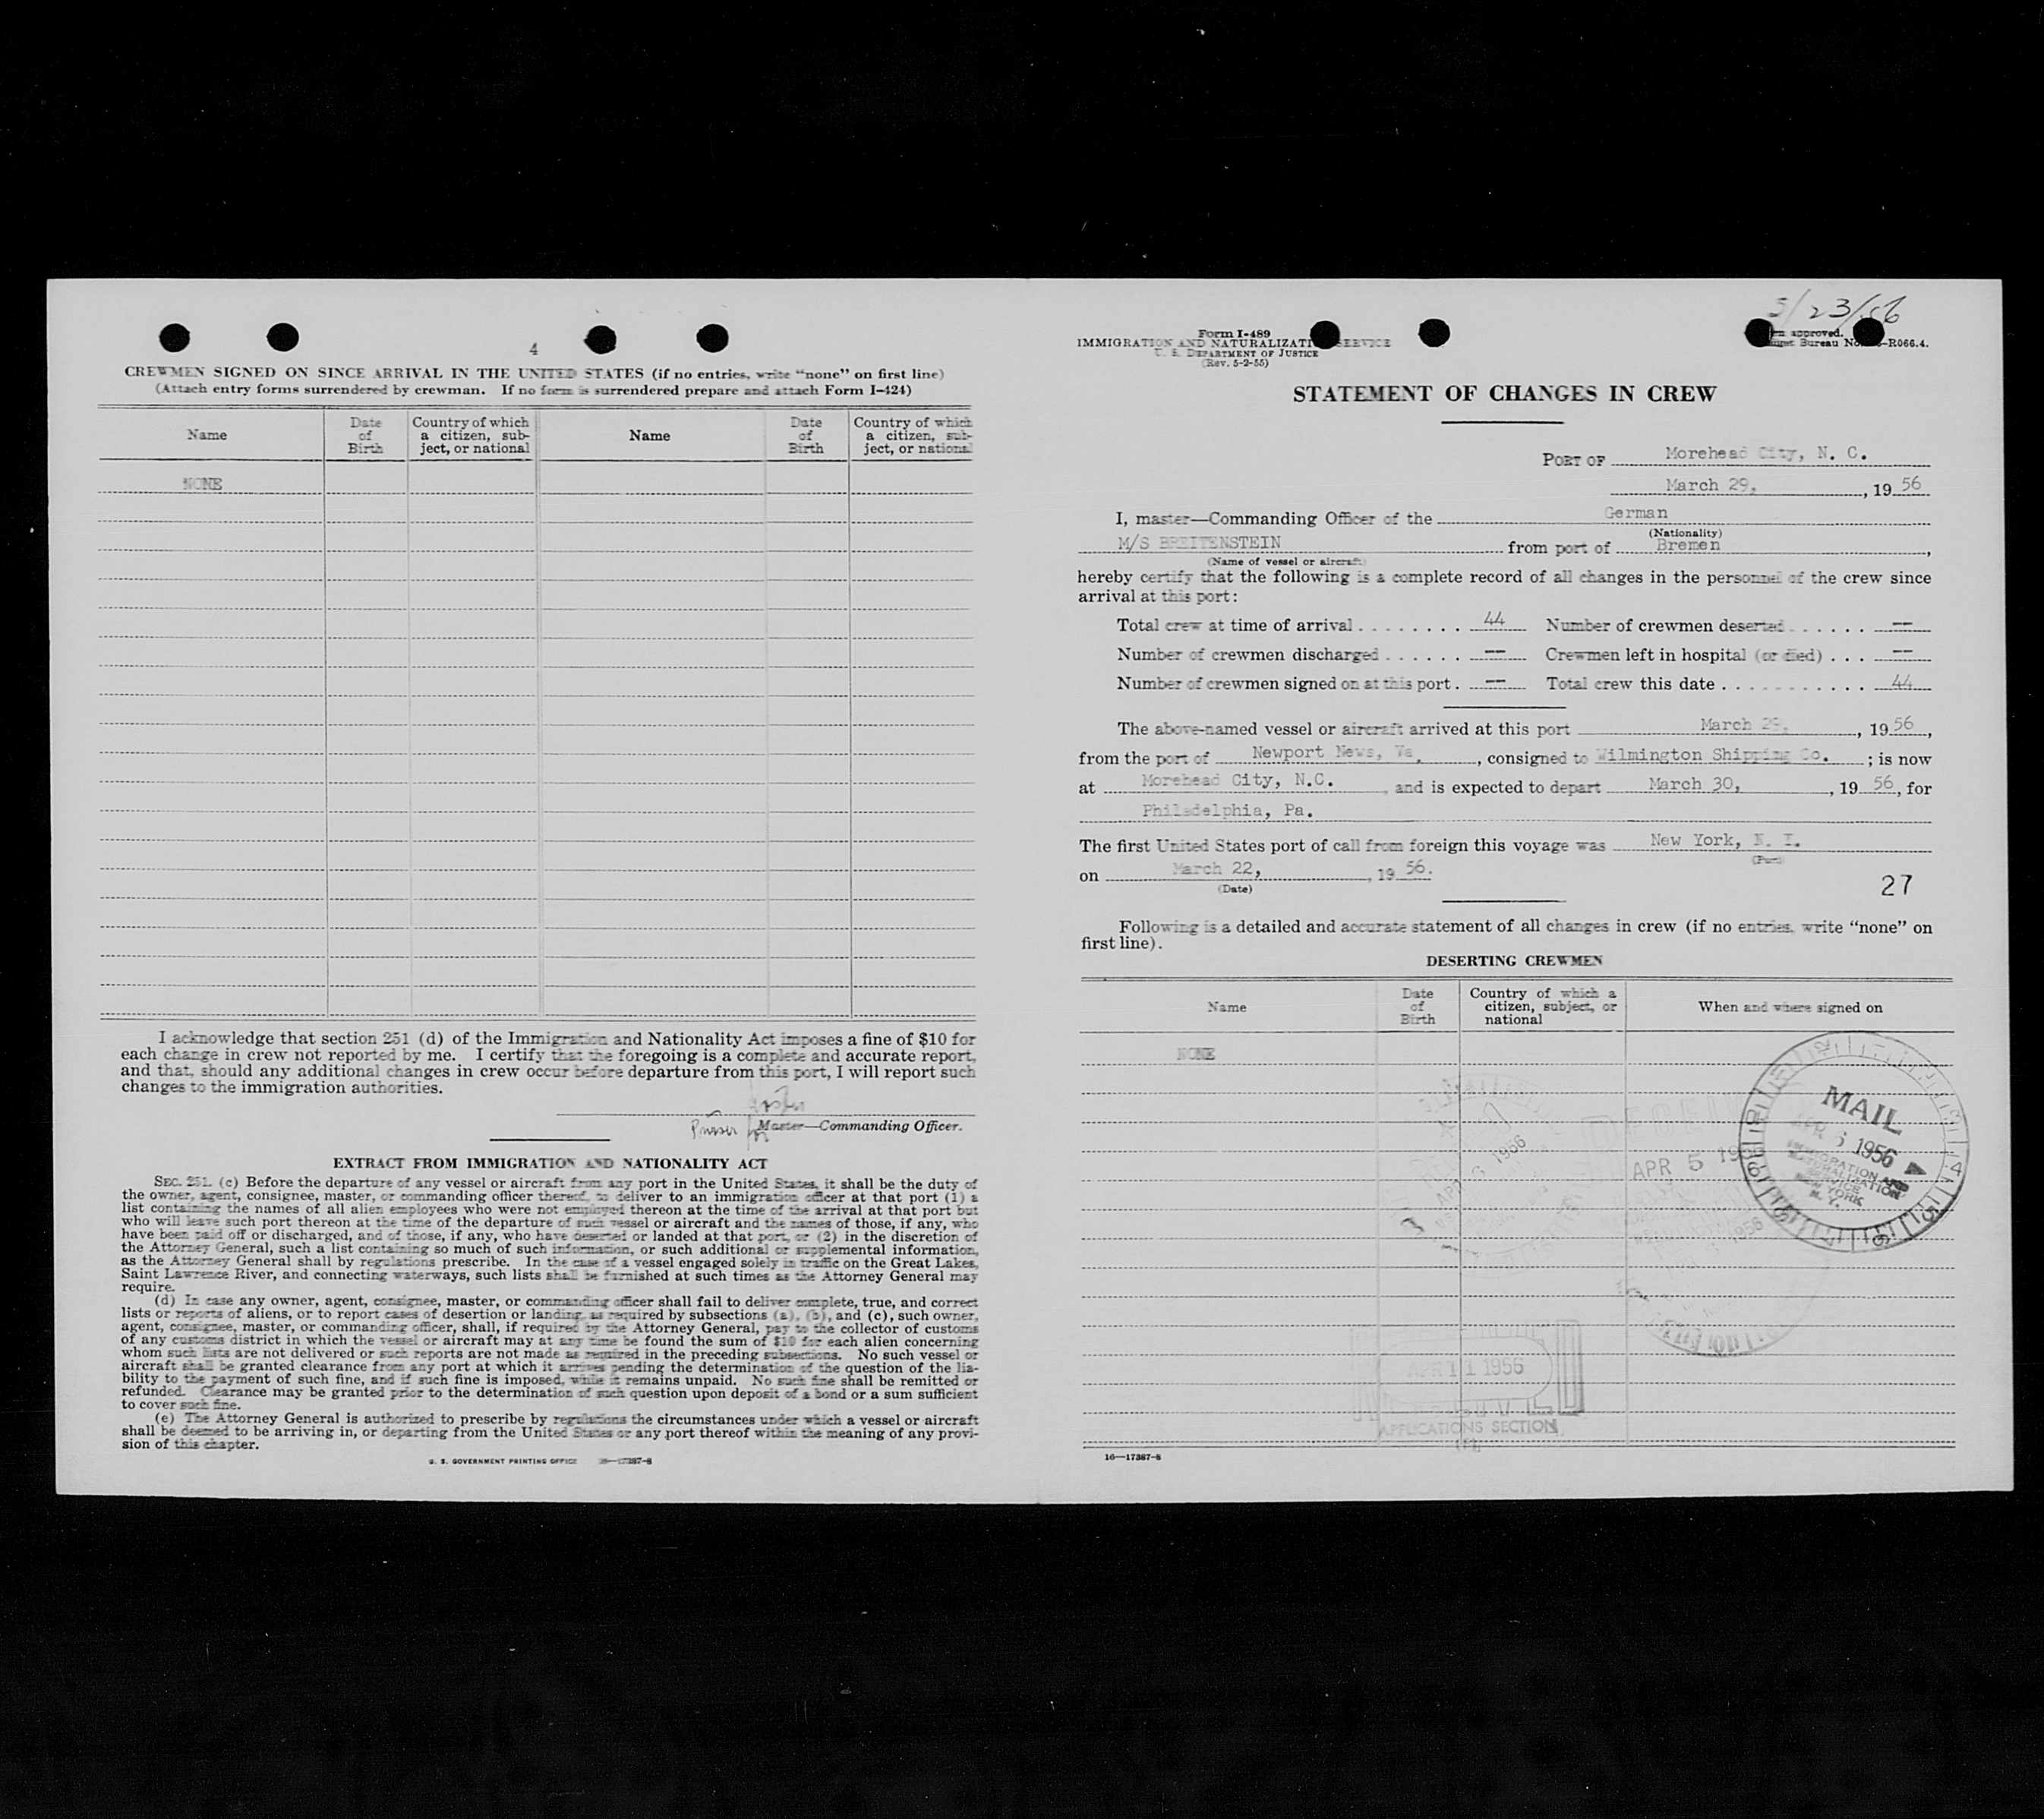 4
CREWMEN SIGNED ON SINCE ARRIVAL IN THE UNITED STATES (if no entries, write “none” on first line)
(Attach entry forms surrendered by crewman. If no form is surrendered prepare and attach Form I-424)
Name Date of Birth Country of which a citizen, subject, or national Name Date of Birth Country of which a citizen, subject, or national
NONE
I acknowledge that section 251 (d) of the Immigration and Nationality Act imposes a fine of $10 for
each change in crew not reported by me. I certify that the foregoing is a complete and accurate report,
and that, should any additional changes in crew occur before departure from this port, I will report such
changes to the immigration authorities.
Master—Commanding Officer.
EXTRACT FROM IMMIGRATION AND NATIONALITY ACT
SEC. 251. (c) Before the departure of any vessel or aircraft from any port in the United States, it shall be the duty of
the owner, agent, consignee, master, or commanding officer thereof, to deliver to an immigration officer at that port (1) a
list containing the names of all alien employees who were not employed thereon at the time of the arrival at that port but
who will leave such port thereon at the time of the departure of such vessel or aircraft and the names of those, if any, who
have been paid off or discharged, and of those, if any, who have deserted or landed at that port, or (2) in the discretion of
the Attorney General, such a list containing so much of such information, or such additional or supplemental information,
as the Attorney General shall by regulations prescribe. In the case of a vessel engaged solely in traffic on the Great Lakes,
Saint Lawrence River, and connecting waterways, such lists shall be furnished at such times as the Attorney General may
require.
(d) In case any owner, agent, consignee, master, or commanding officer shall fail to deliver complete, true, and correct
lists or reports of aliens, or to report cases of desertion or landing, as required by subsections (a), (b), and (c), such owner,
agent, consignee, master, or commanding officer, shall, if required by the Attorney General, pay to the collector of customs
of any customs district in which the vessel or aircraft may at any time be found the sum of $10 for each alien concerning
whom such lists are not delivered or such reports are not made as required in the preceding subsections. No such vessel or
aircraft shall be granted clearance from any port at which it arrives pending the determination of the question of the lia-
bility to the payment of such fine, and if such fine is imposed, while it remains unpaid. No such fine shall be remitted or
refunded. Clearance may be granted prior to the determination of such question upon deposit of a bond or a sum sufficient
to cover such fine.
(e) The Attorney General is authorized to prescribe by regulations the circumstances under which a vessel or aircraft
shall be deemed to be arriving in, or departing from the United States or any port thereof within the meaning of any provi-
sion of this chapter.
U. S. GOVERNMENT PRINTING OFFICE 16—17387-8
5/23/56
Form I-489
IMMIGRATION AND NATURALIZATI SERVICE
U. S. DEPARTMENT OF JUSTICE
(Rev. 5-2-55)
approved.
Bureau No. -R066.4.
STATEMENT OF CHANGES IN CREW
PORT OF Morehead City, N. C.
March 29, , 19 56
I, master—Commanding Officer of the German
(Nationality)
M/S BREITENSTEIN from port of Bremen ,
(Name of vessel or aircraft)
hereby certify that the following is a complete record of all changes in the personnel of the crew since
arrival at this port:
Total crew at time of arrival . . . . . . . . 44 Number of crewmen deserted . . . . . . —
Number of crewmen discharged . . . . . . — Crewmen left in hospital (or died) . . . —
Number of crewmen signed on at this port . — Total crew this date . . . . . . . . . . . . 44
The above-named vessel or aircraft arrived at this port March 29, , 19 56 ,
from the port of Newport News, Va. , consigned to Wilmington Shipping Co. ; is now
at Morehead City, N.C. , and is expected to depart March 30, , 19 56, for
Philadelphia, Pa.
The first United States port of call from foreign this voyage was New York, N. Y.
(Port)
on March 22, , 19 56.
(Date)
27
Following is a detailed and accurate statement of all changes in crew (if no entries, write “none” on
first line).
DESERTING CREWMEN
Name Date of Birth Country of which a citizen, subject, or national When and where signed on
NONE
MAIL
APR 6 1956
IMMIGRATION AND
NATURALIZATION
SERVICE
NEW YORK
N. Y.
APR 5
APR 11 1956
APPLICATIONS SECTION
16—17387-8